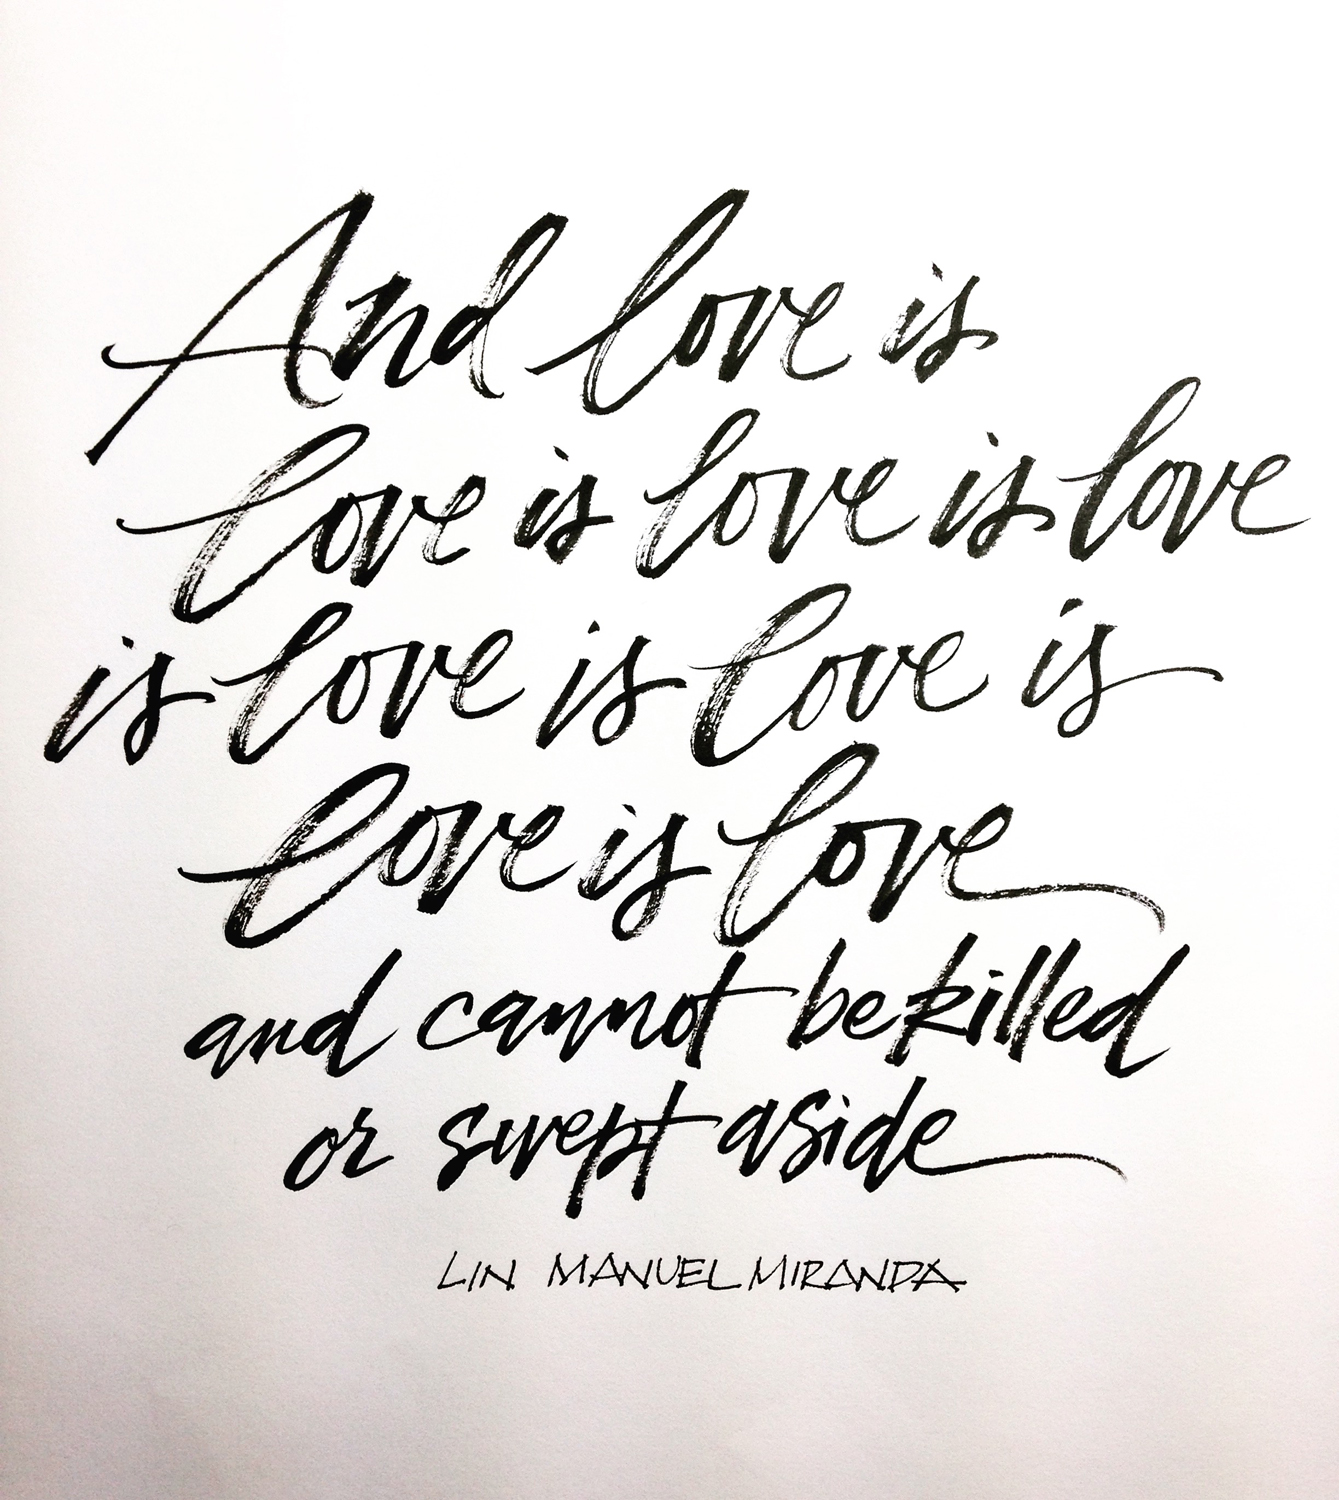 And love is
love is love is love
is love is love is
love is love
and cannot be killed
or swept aside
LIN MANUEL MIRANDA